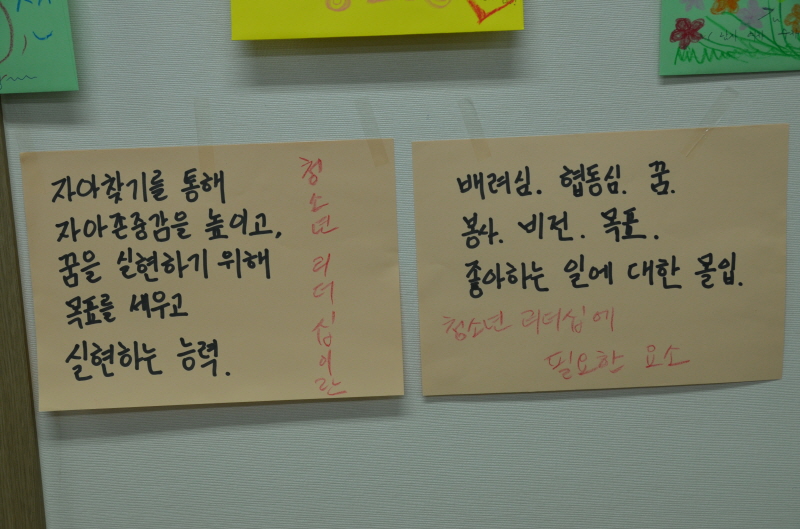 자아찾기를 통해
자아존중감을 높이고,
꿈을 실현하기 위해
목표를 세우고
실현하는 능력.
청소년 리더십이란
배려심. 협동심. 꿈.
봉사. 비전. 목표.
좋아하는 일에 대한 몰입.
청소년 리더십에
필요한 요소